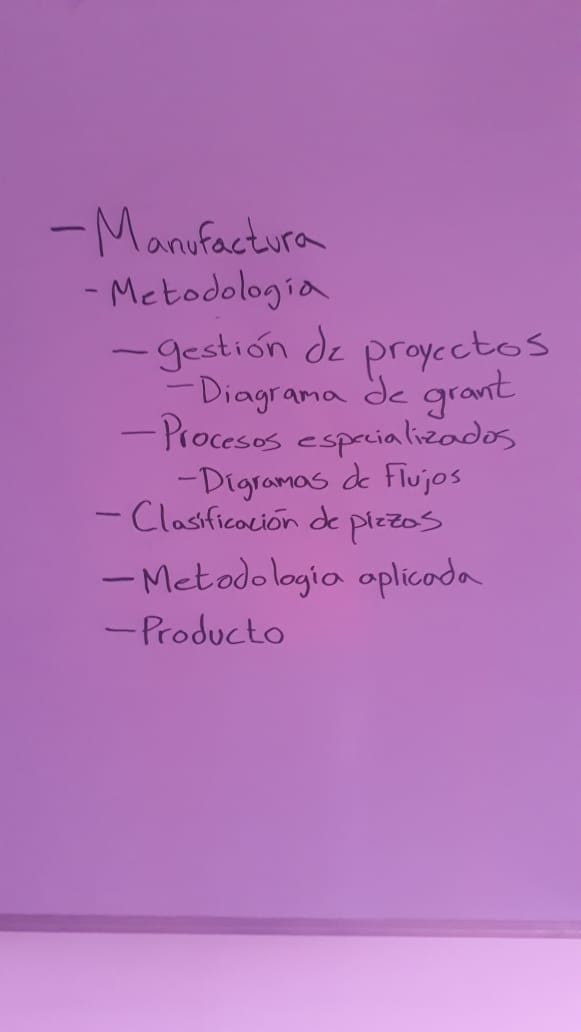 - Manufactura
- Metodologia
- gestión de proyectos
- Diagrama de grant
- Procesos especializados
- Digramas de Flujos
- Clasificación de piezas
- Metodologia aplicada
- Producto